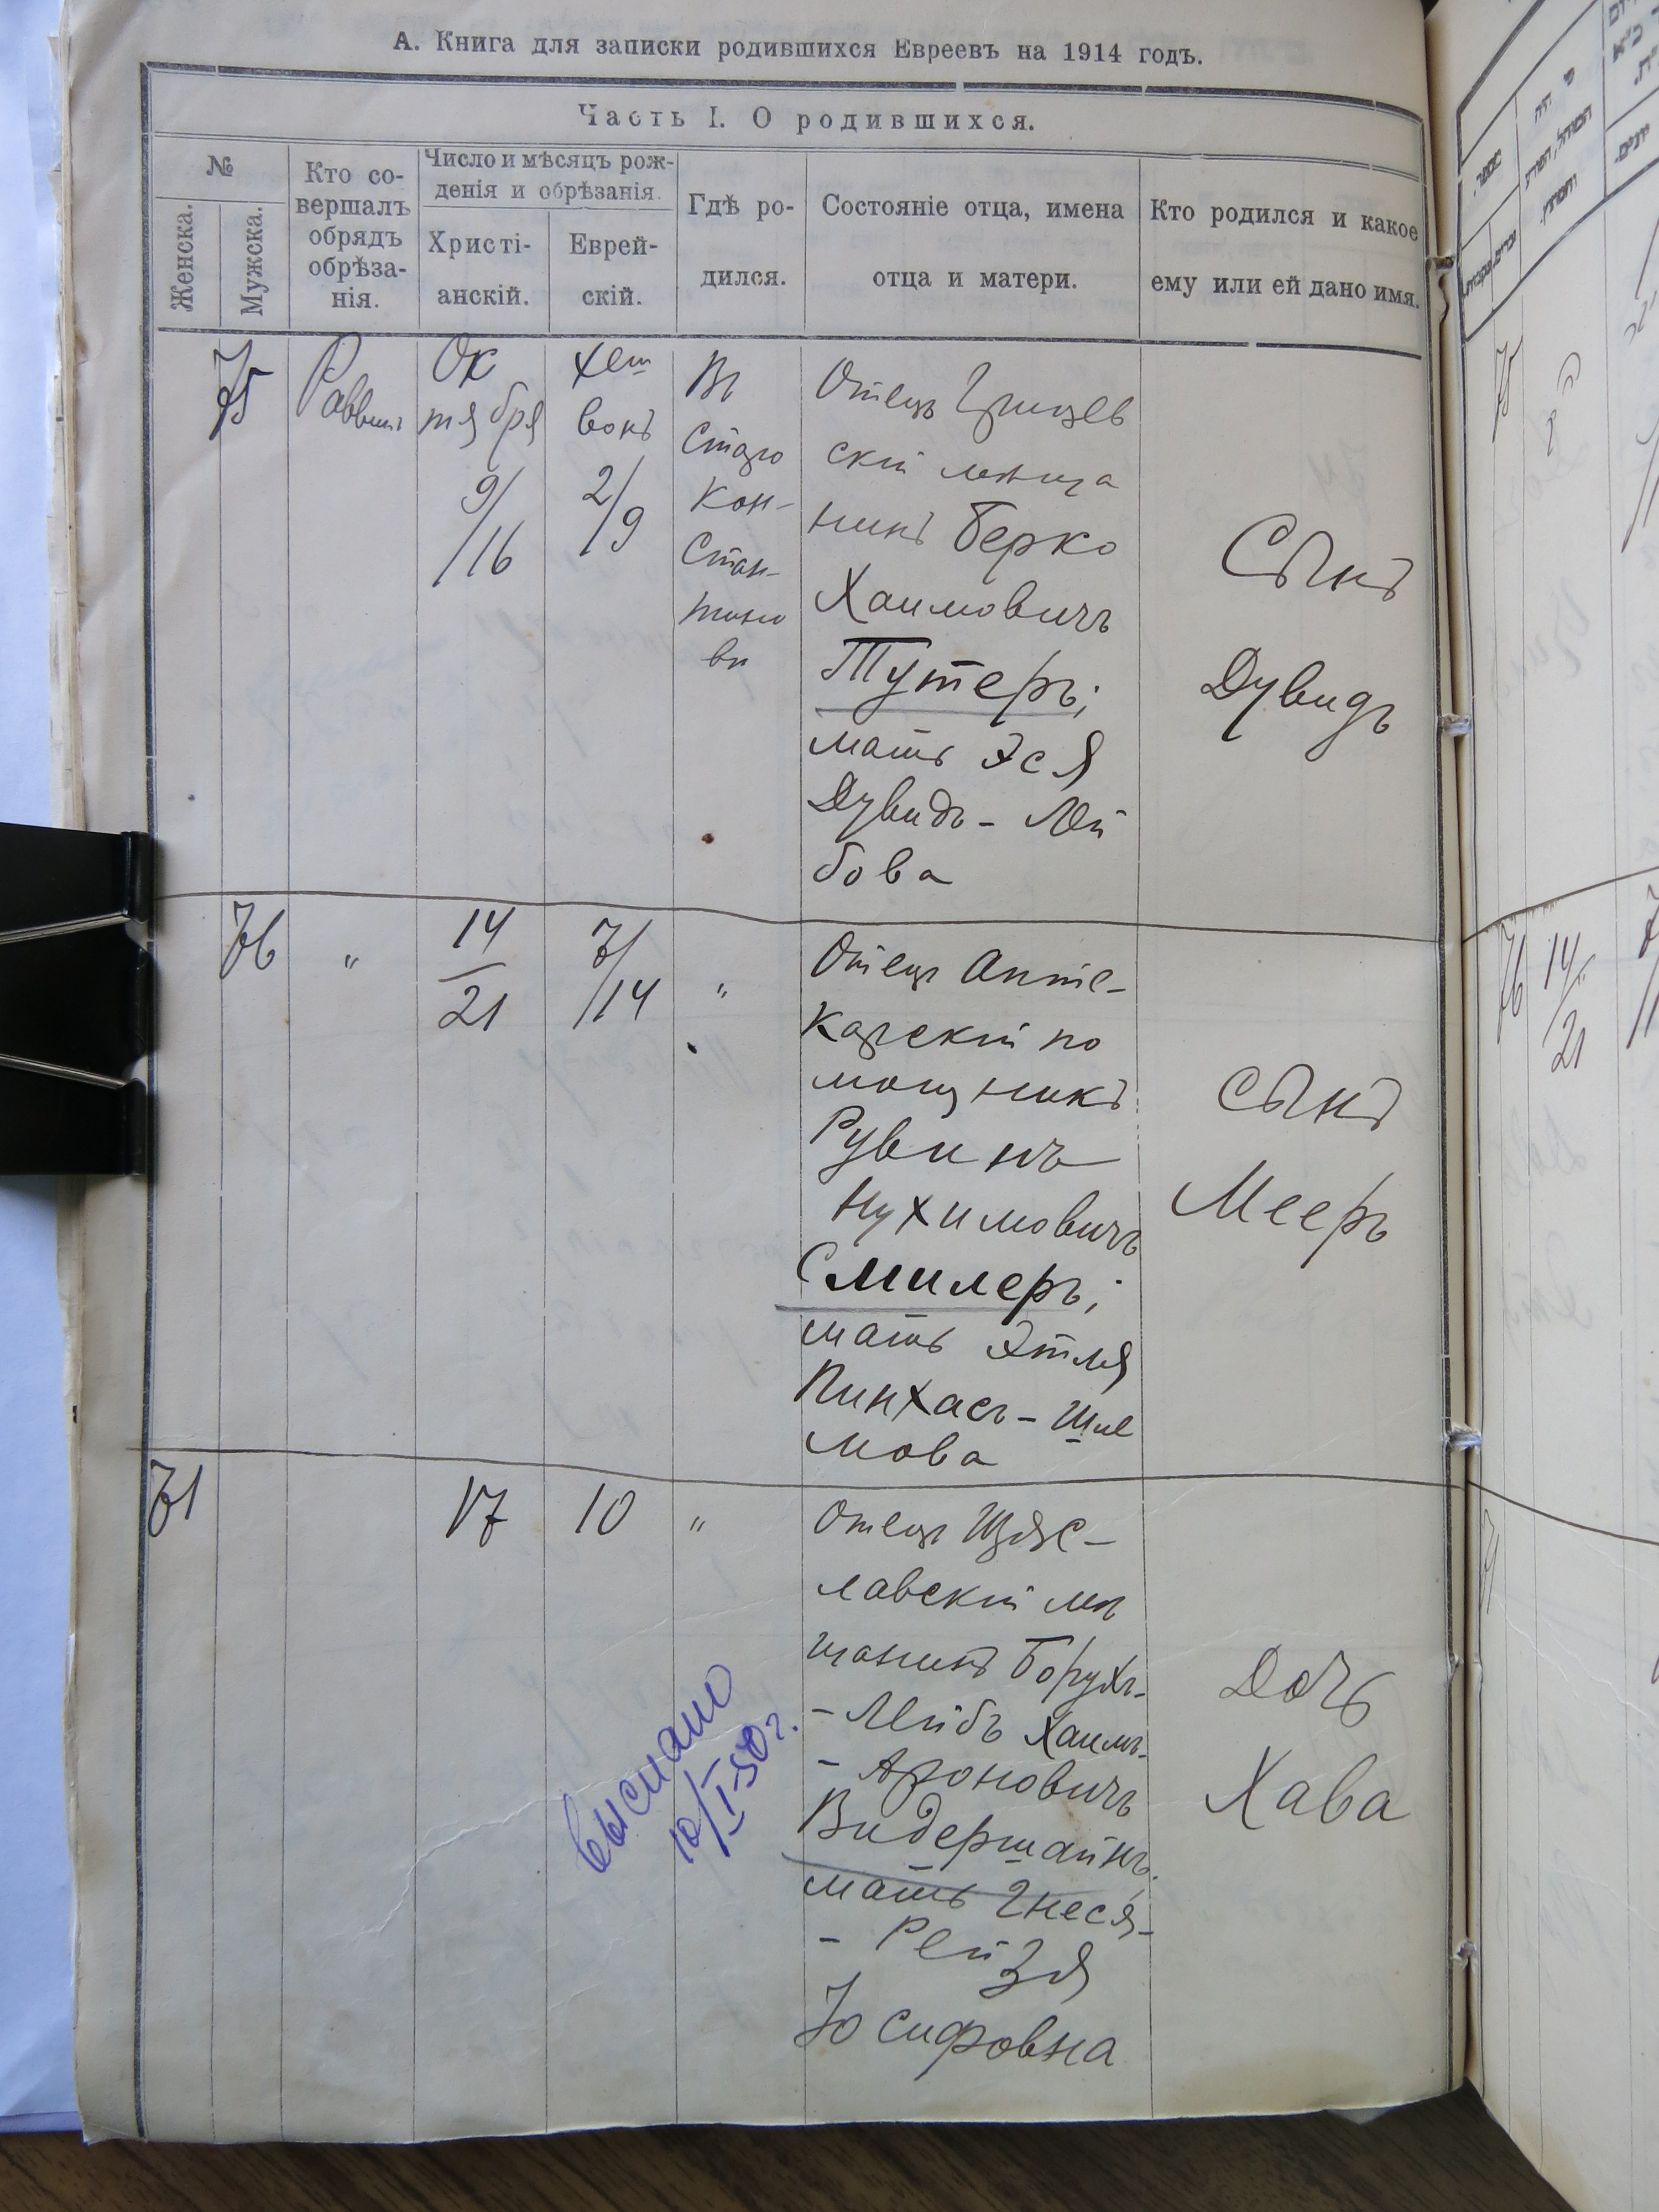 А. Книга для записки родившихся Евреевъ на 1914 годъ.
Часть I. О родившихся.
№
Женска.
Мужска.
Кто со-
вершалъ
обрядъ
обрѣза-
нія.
Число и мѣсяцъ рож-
денія и обрѣзанія.
Христі-
анскій.
Еврей-
скій.
Гдѣ ро-
дился.
Состояніе отца, имена
отца и матери.
Кто родился и какое
ему или ей дано имя.
75
Раввинъ
Ок
тября
9/
/16
Хеш
вонъ
2/
/9
Въ
Старо
Кон-
стан-
тино
вѣ
Отецъ
скій мѣща
нинъ Берко
Хаимовичъ
Тутеръ;
мать Эся
Дувидъ - Лей
бова
Сынъ
Дувидъ
76
"
14
21
7/
/14
"
Отецъ Апте-
карскій по
мощникъ
Рувинъ
Нухимовичъ
Смилеръ;
мать Этля
Пинхасъ - Шле
мова
Сынъ
Мееръ
71
17
10
"
Отецъ Изяс-
лавскій мѣ
щанинъ Борухъ-
- Лейбъ Хаимъ-
- Ароновичъ
Видершайнъ.
мать Гнеся-
- Рейзя
Іосифовна
Дочь
Хава
выслано
10/I-50 г.
75
76
14
21
71